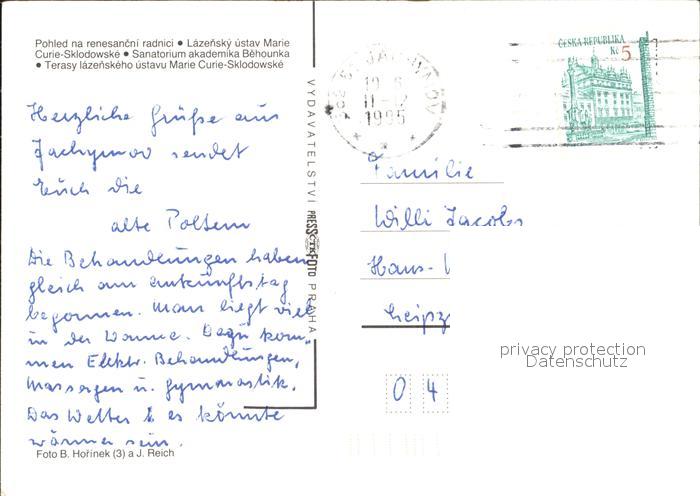 Pohled na renesanční radnici ● Lázeňský ústav Marie
Curie-Sklodowské ● Sanatorium akademika Běhounka
● Terasy lázeňského ústavu Marie Curie-Sklodowské
Herzliche Grüße aus
Jachymov sendet
Euch die
alte
Die Behandlungen haben
gleich am Ankunftstag
begonnen. Man liegt viel
in der Wanne. Dazu kom-
men Elektr. Behandlungen,
Massagen u. Gymnastik.
Das Wetter es könnte
wärmer sein.
Foto B. Hořínek (3) a J. Reich
VYDAVATELSTVÍ PRESSFOTO PRAHA
ČTK
JÁCHYMOV
19.6
11-12
1995
ČESKÁ REPUBLIKA
Kč 5
Familie
Willi Jacobs
Hans-
Leipz
privacy protection
Datenschutz
04